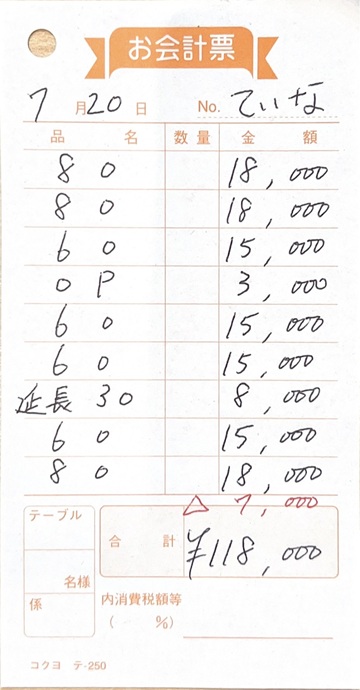 お会計票
7月20日 No. ていな
品名 数量 金額
80 18,000
80 18,000
60 15,000
OP 3,000
60 15,000
60 15,000
延長30 8,000
60 15,000
80 18,000
△ 7,000
テーブル
合計 ¥118,000
名様
係
内消費税額等
( %)
コクヨ テ-250